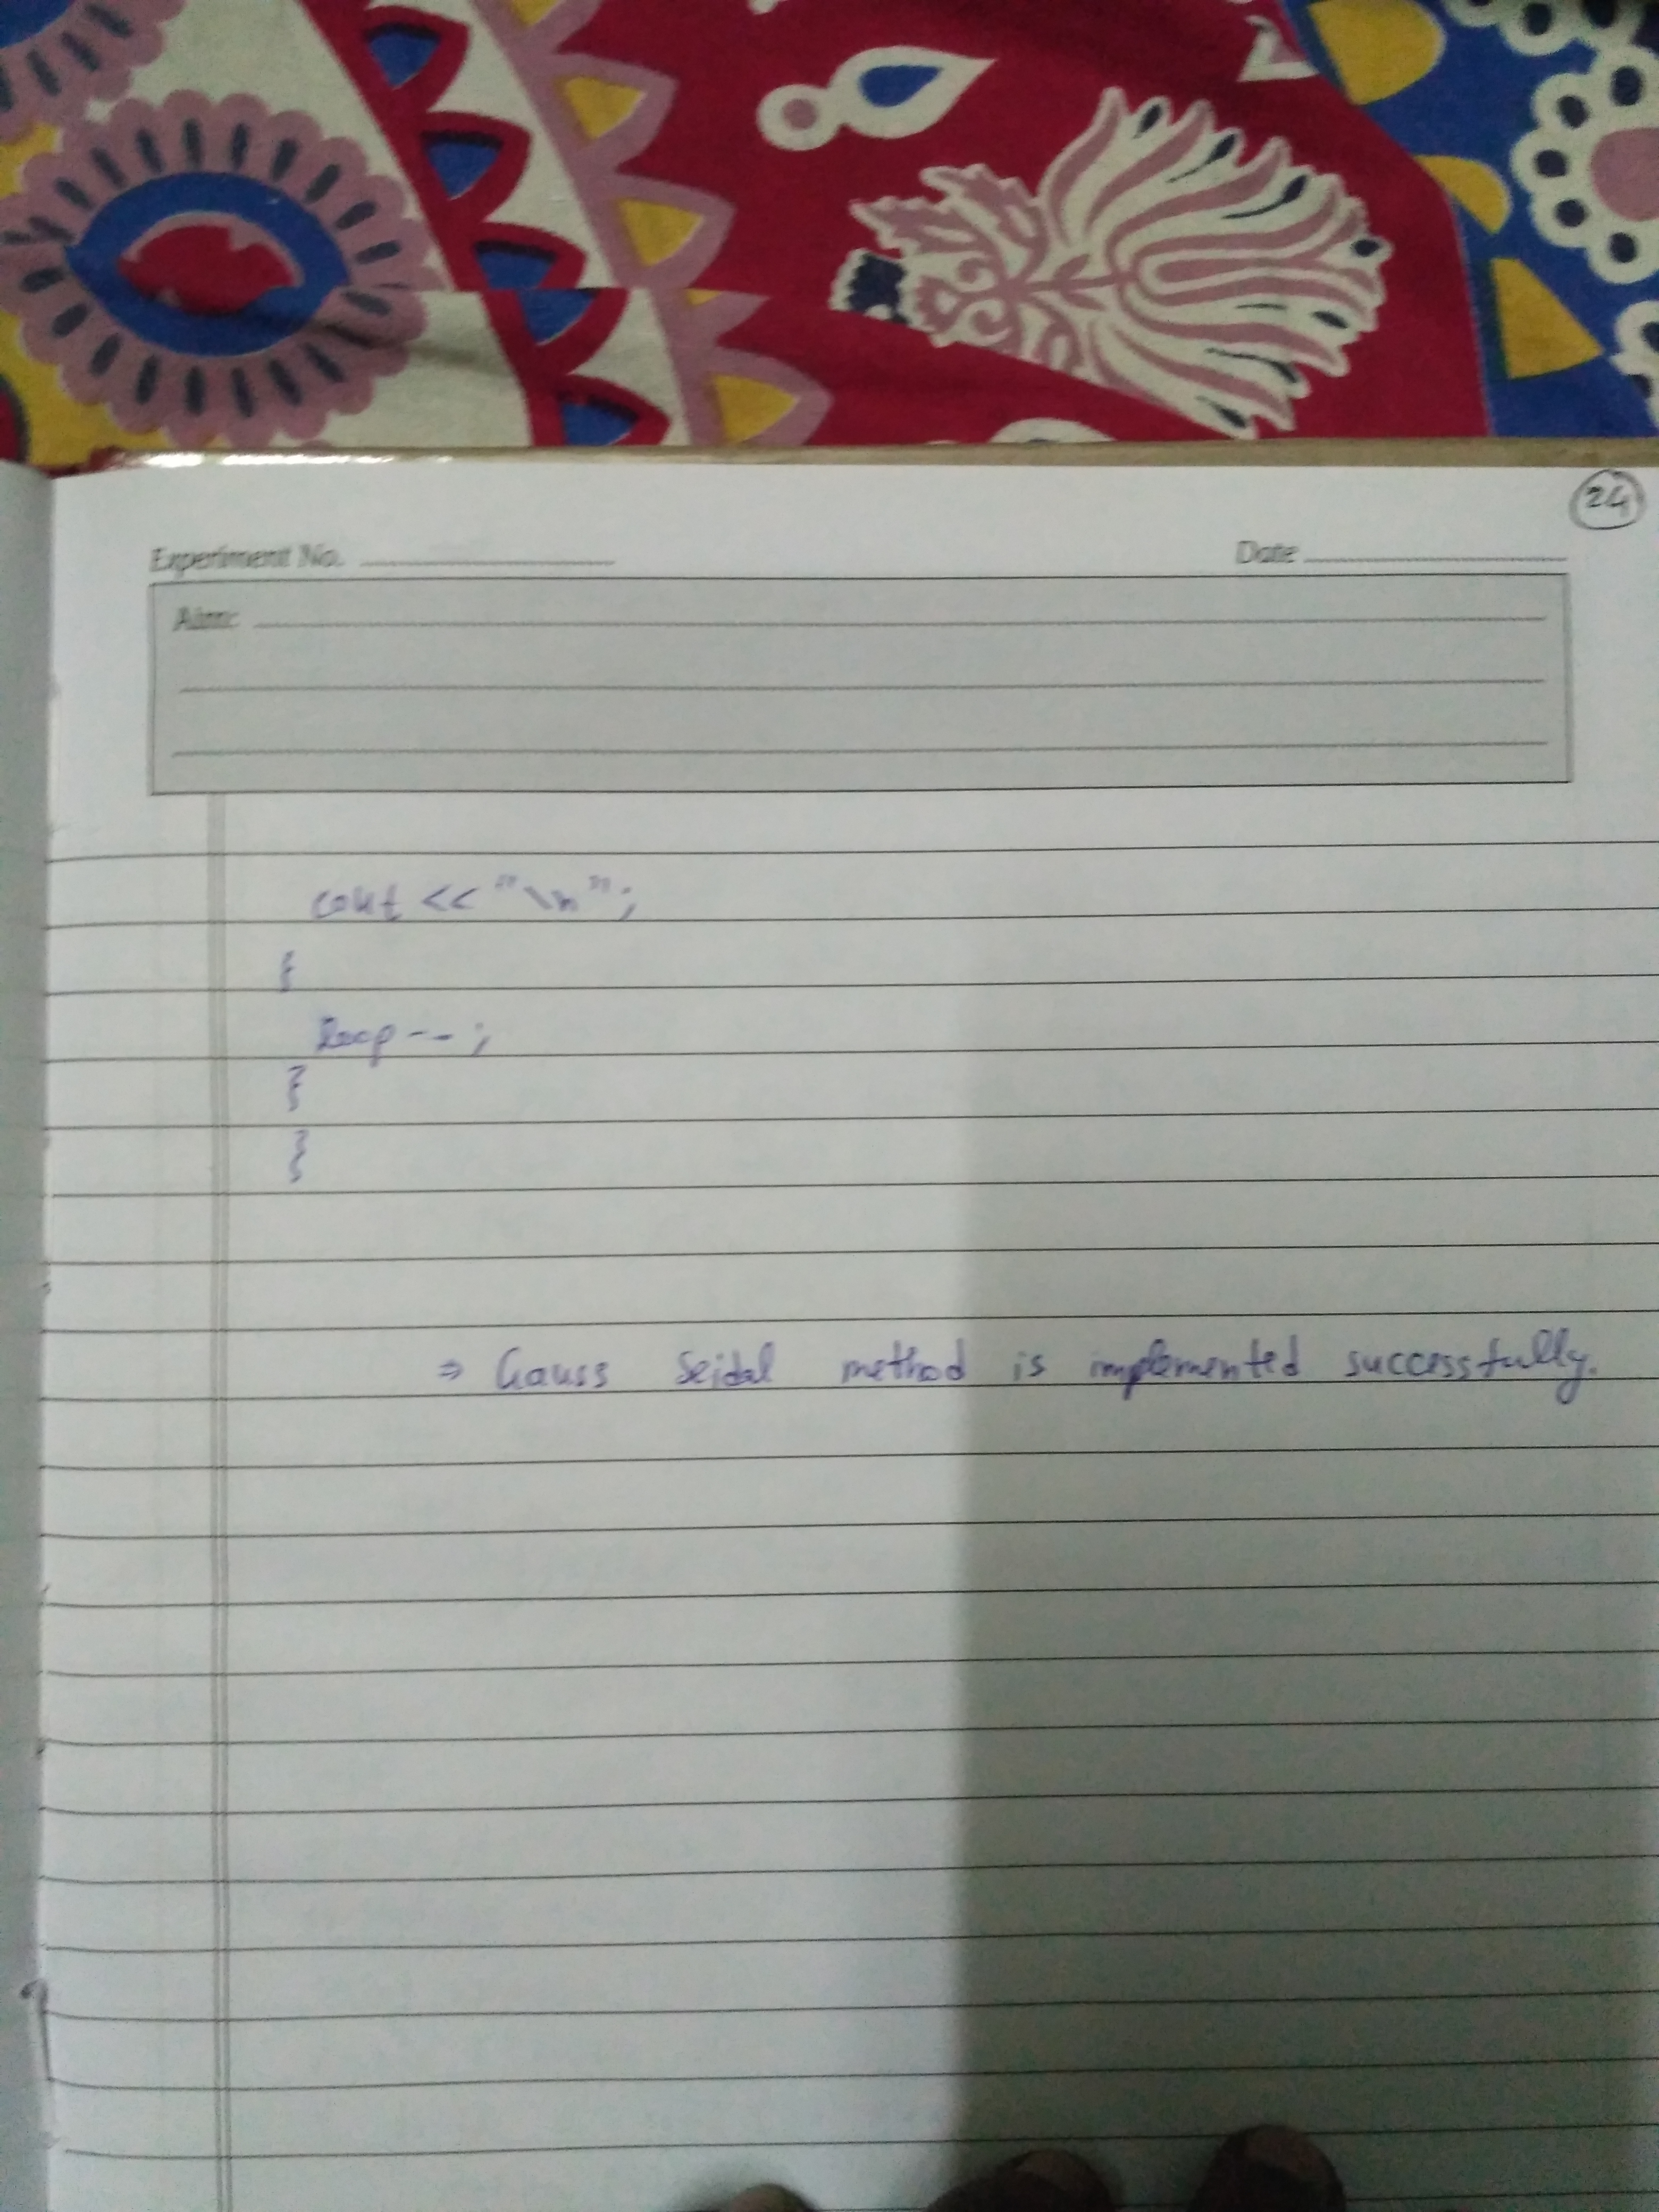 24
Experiment No. Date
Aim:
cout << "\n";
}
loop--;
}
}
⇒ Gauss Seidal method is implemented successfully.